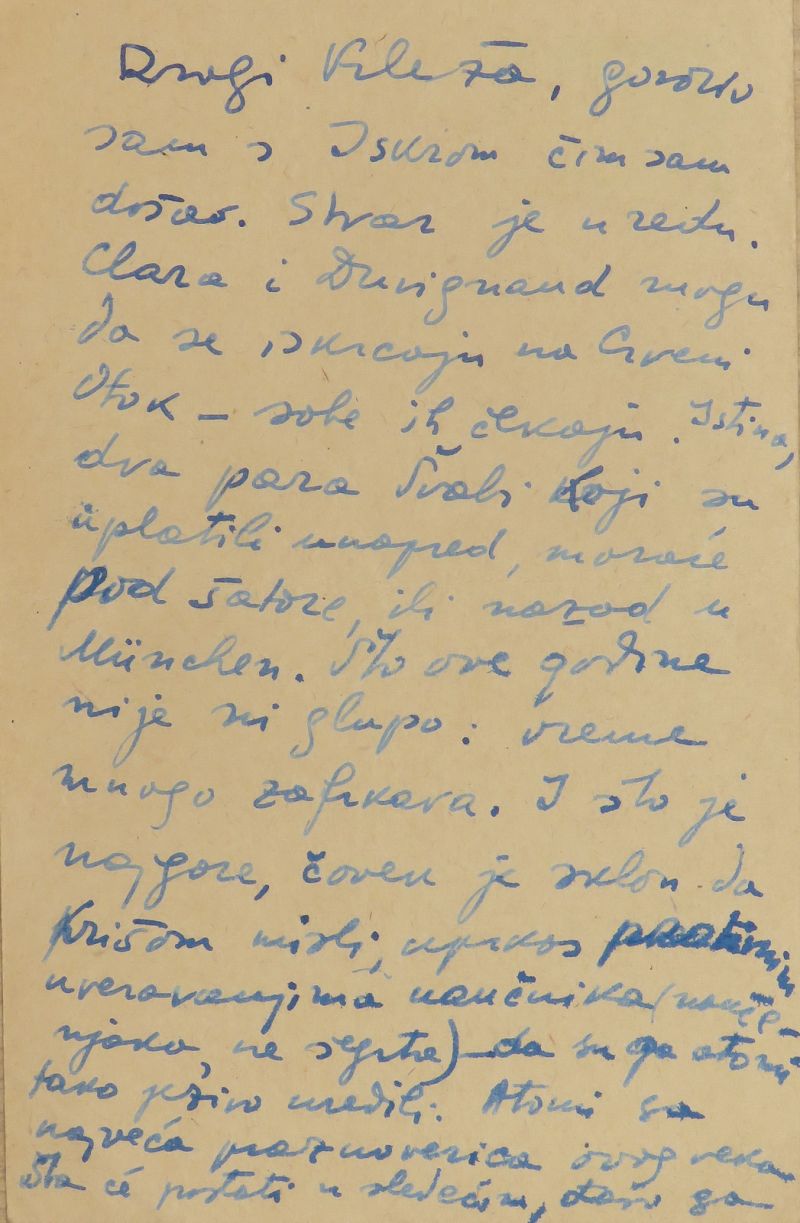 Dragi Krleža, govorio
sam s Iskrom čim sam
došao. Stvar je u redu.
Clara i Duvignaud mogu
da se iskrcaju na Crveni
Otok – sobe ih čekaju. Istina,
dva para Švabi koji su
uplatili unapred, moraće
pod šatore, ili nazad u
München. Što ove godine
nije ni glupo: vreme
mnogo zafrkava. I što je
najgore, čovek je sklon da
krišom misli, uprkos
uveravanjima naučnika (
ne) da su ga atomi
tako uredili. Atomi su
najveća praznoverica ovog veka.
Šta će postati u sledećem,